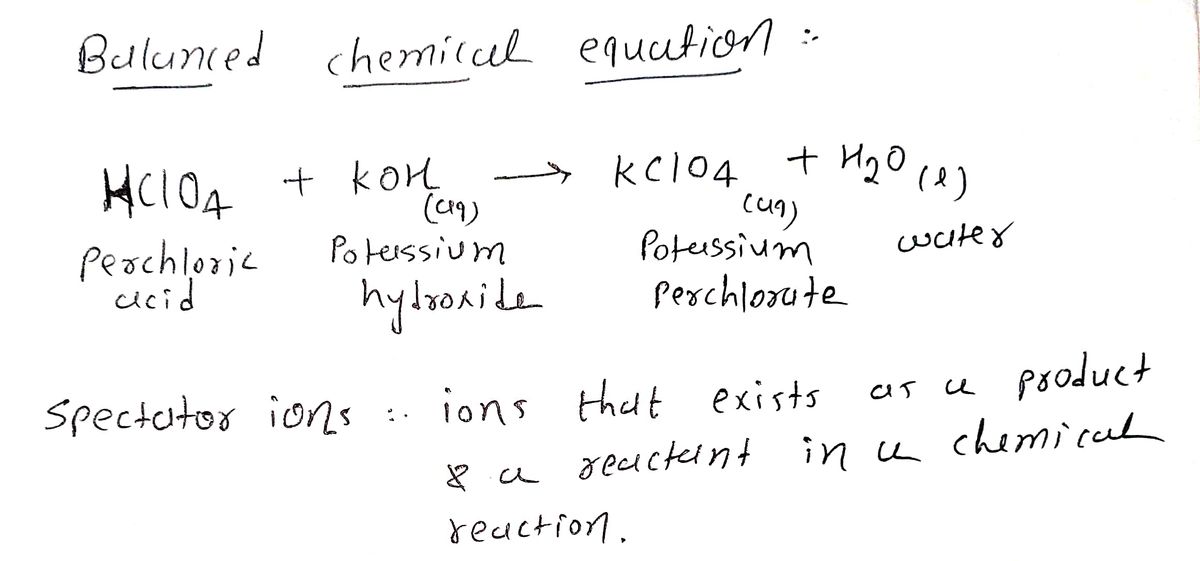 Balanced chemical equation :-
HClO4 + KOH (aq) → KClO4 (aq) + H2O (l)
Perchloric acid Potassium hydroxide Potassium Perchlorate water
Spectator ions :- ions that exists as a product
& a reactant in a chemical
reaction.